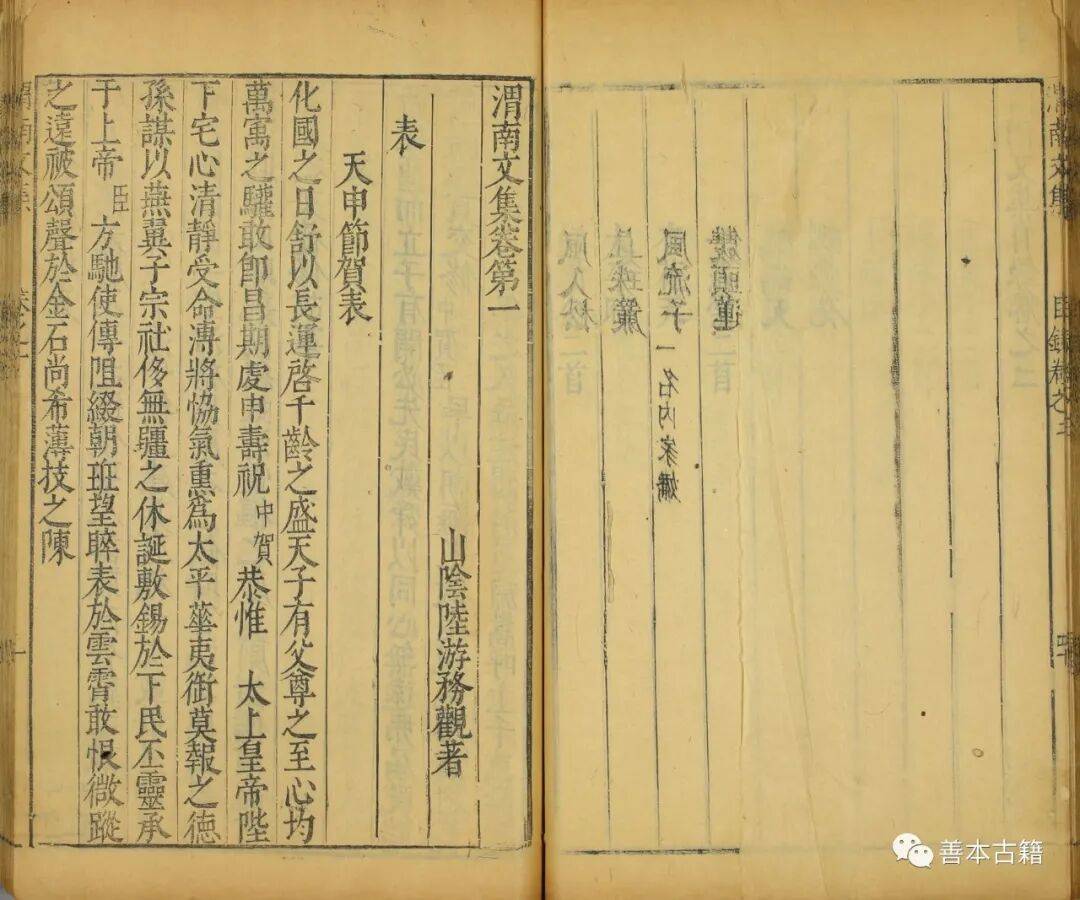 渭南文集
雙頭蓮
風流子 一名內家嬌
真珠簾
風入松
渭南文集卷第一
山陰陸游務觀著
表
天申節賀表
化國之日舒以長運啓千齡之盛天子有父尊之至心均
萬㝢之驩敢卽昌期虔申壽祝中賀恭惟 太上皇帝陛
下宅心清靜受命溥將恊氣熏爲太平華夷銜莫報之德
孫謀以燕翼子宗社侈無疆之休誕敷錫於下民丕靈承
于上帝臣方馳使傳阻綴朝班望睟表於雲霄敢恨微蹤
之遠被頌聲於金石尚希薄技之陳
善本古籍